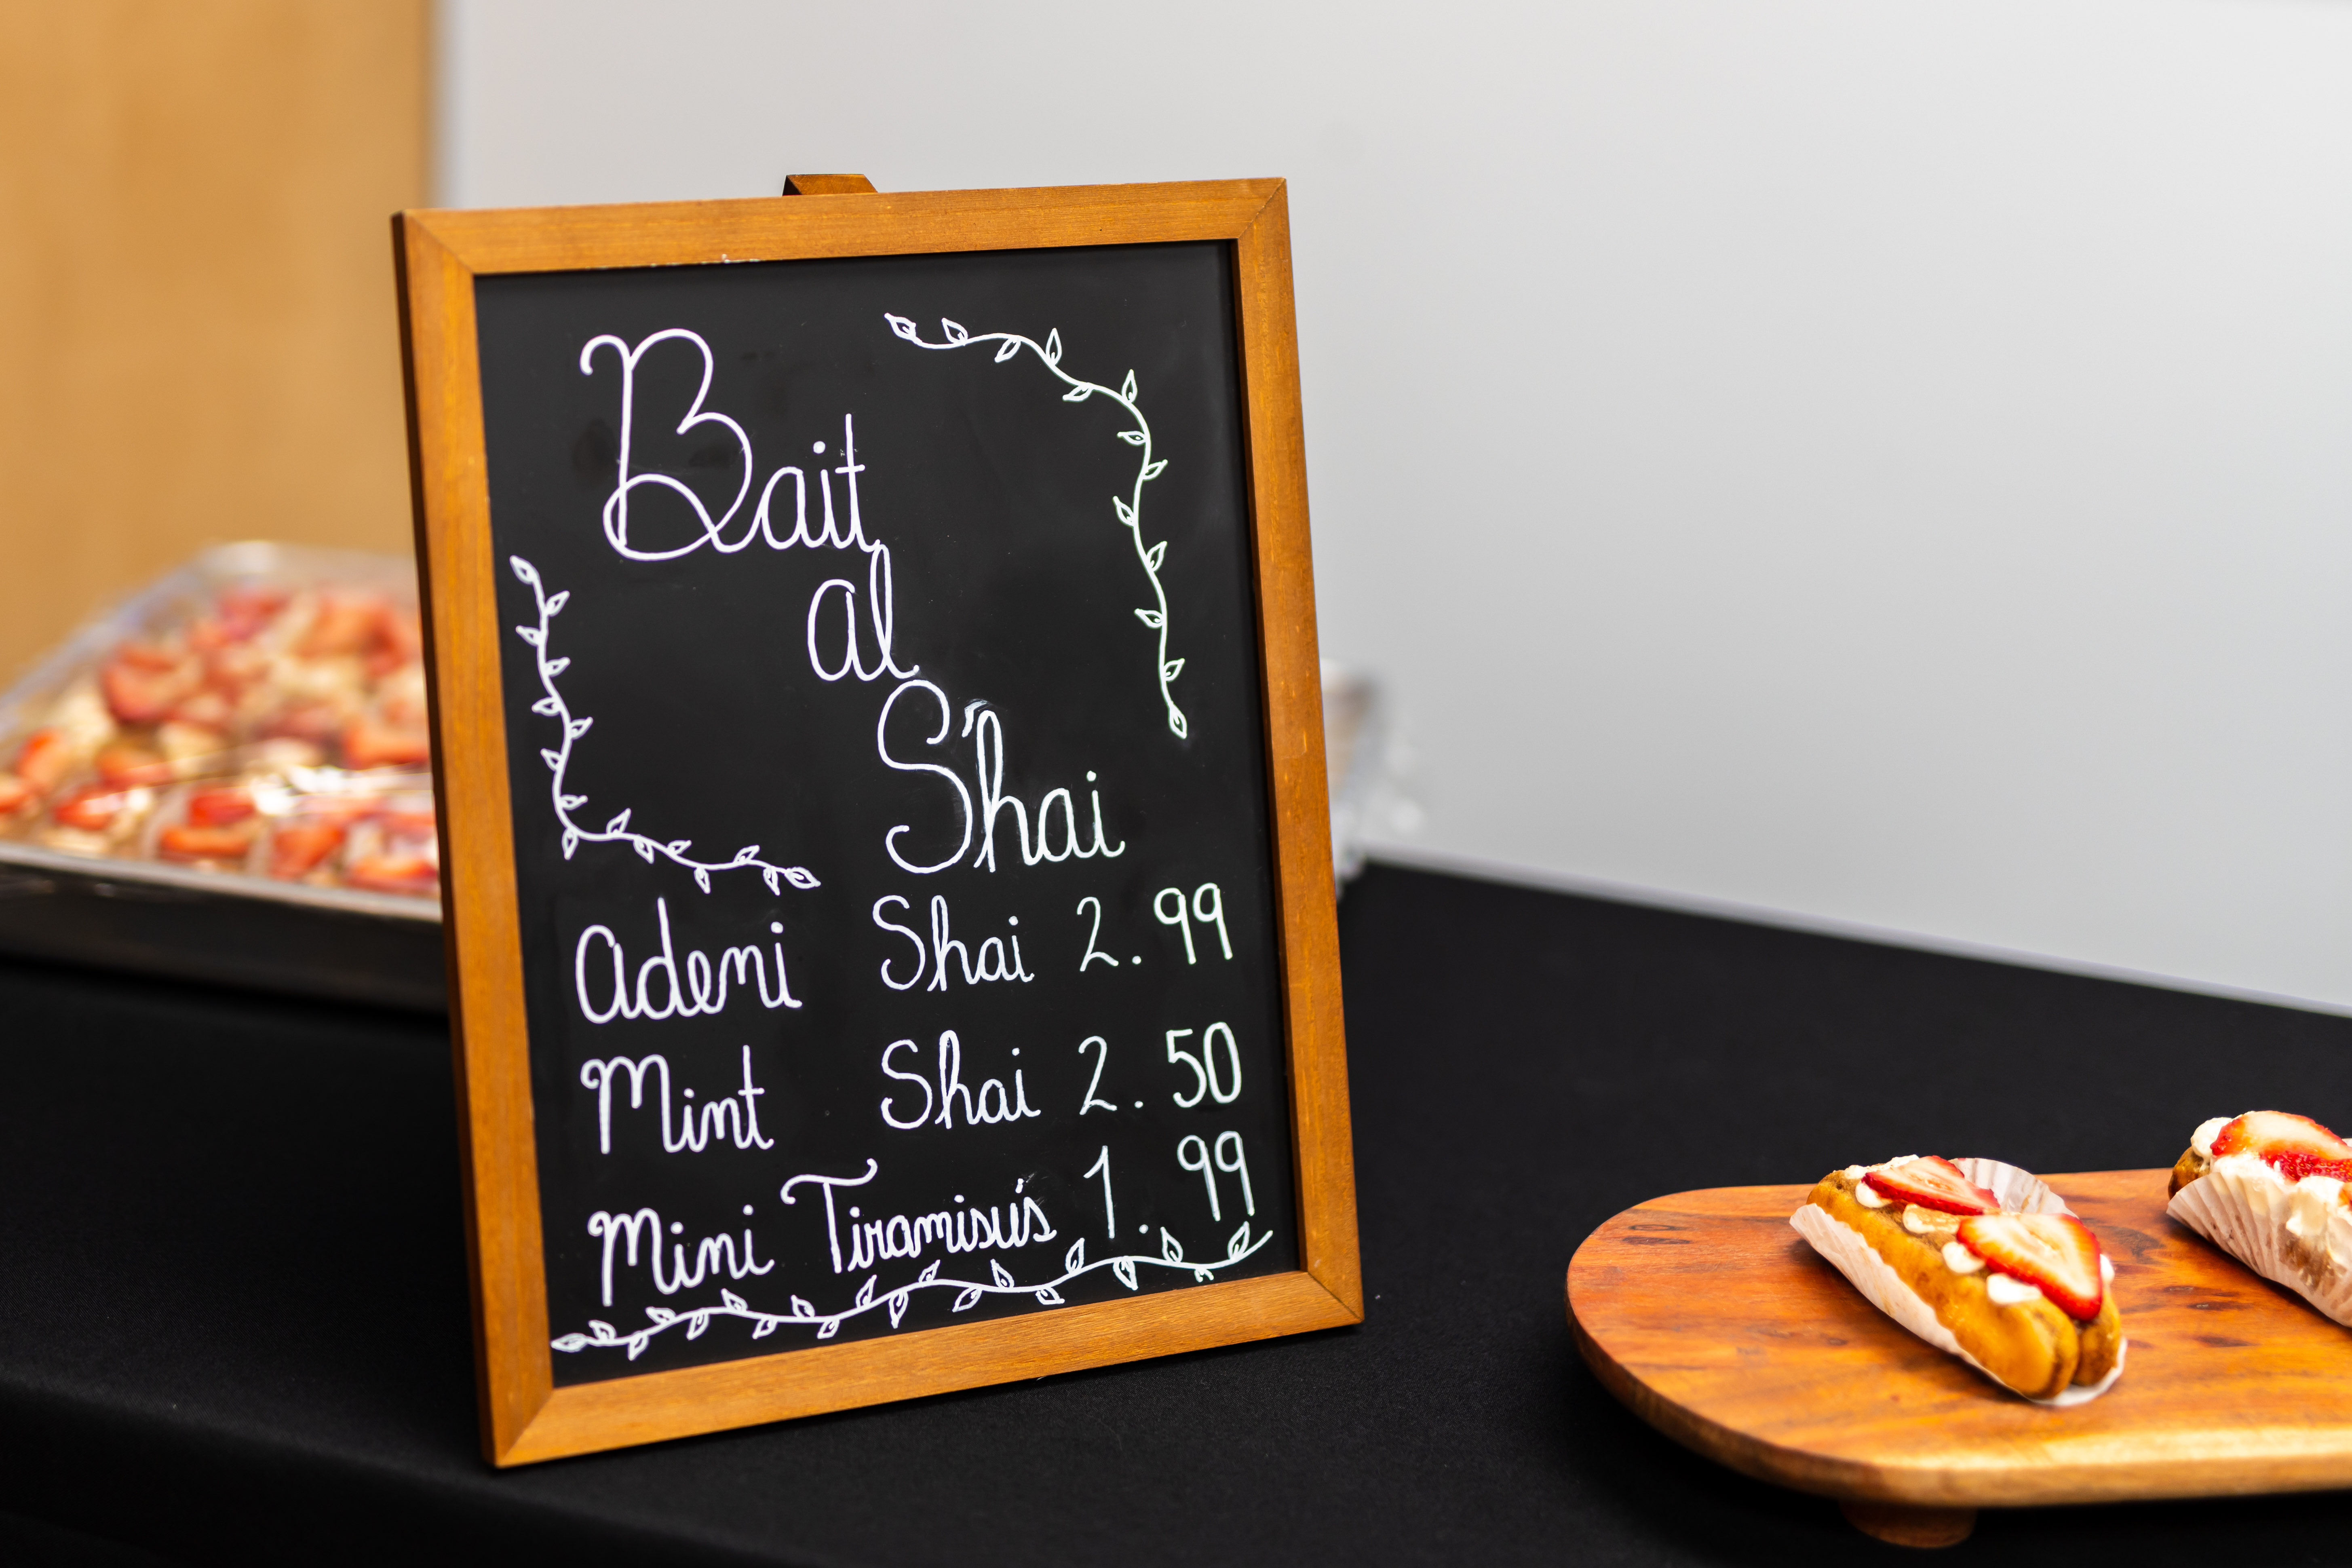 Bait
al
S'hai
Adeni Shai 2.99
Mint Shai 2.50
Mini Tiramisú's 1.99